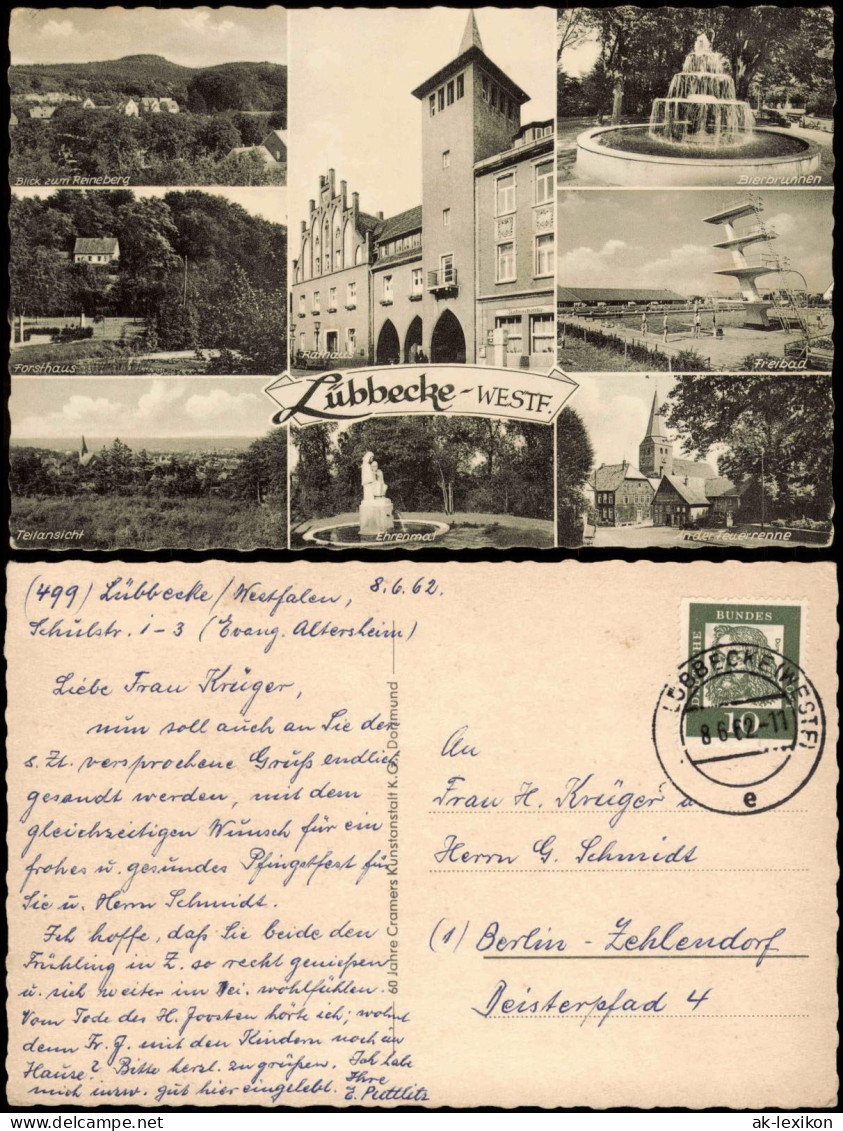 Blick zum Reineberg
Rathaus
Bierbrunnen
Forsthaus
Freibad
Lübbecke-WESTF.
Teilansicht
Ehrenmal
In der Feuerrenne
(499) Lübbecke / Westfalen, 8.6.62.
Schulstr. 1-3 (Evang. Altersheim)
Liebe Frau Krüger,
nun soll auch an Sie der
s. Zt. versprochene Gruß endlich
gesandt werden, mit dem
gleichzeitigen Wunsch für ein
frohes u. gesundes Pfingstfest für
Sie u. Herrn Schmidt.
Ich hoffe, daß Sie beide den
Frühling in Z. so recht genießen
u. sich weiter im wohlfühlen.
Vom Tode des H. Joosten hörte ich; wohnt
denn Fr. J. mit den Kindern noch im
Hause? Bitte herzl. zu grüßen. Ich habe
mich inzw. gut hier eingelebt. Ihre
E. Puttlitz
60 Jahre Cramers Kunstanstalt K.G., Dortmund
BUNDES
10
LÜBBECKE (WESTF)
8.6.62-11
e
An
Frau H. Krüger u
Herrn G. Schmidt
(1) Berlin-Zehlendorf
Deisterpfad 4
ak-ansichtskarten.de
ak-lexikon